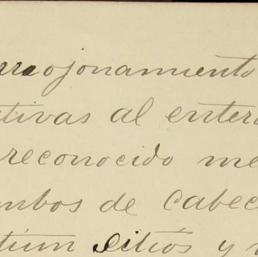 ojonamiento
tivas al entera
reconocido me
mbos de Cabec
sitios y